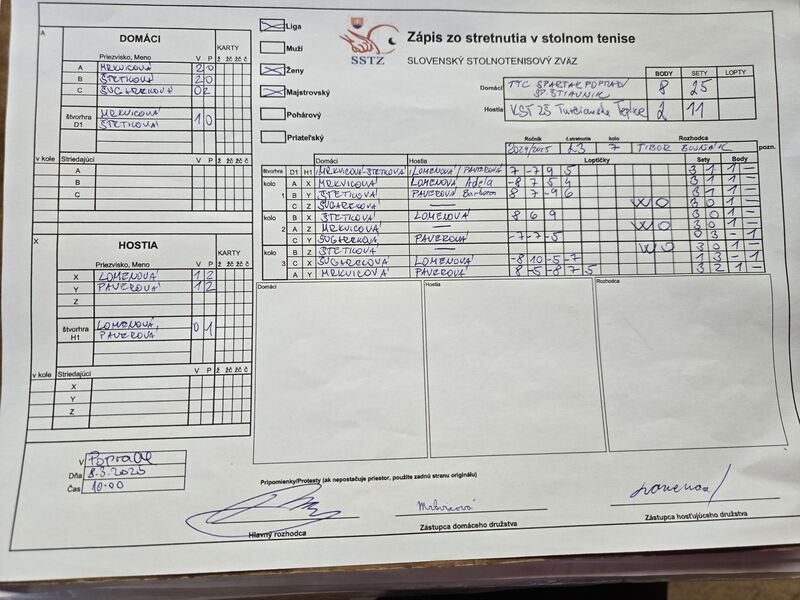 Zápis zo stretnutia v stolnom tenise
SLOVENSKÝ STOLNOTENISOVÝ ZVÄZ
SSTZ
Liga
Muži
Ženy
Majstrovský
Pohárový
Priateľský
BODY SETY LOPTY
Domáci TTC SPARTAK POPRAD/ SP. ŠTIAVNIK 8 25
Hostia VST ZŠ Turčianske Teplice 2 11
Ročník č.stretnutia kolo Rozhodca
2024/2025 7 TIBOR pozn.
A
DOMÁCI
Priezvisko, Meno V P KARTY
ž žč žč č
A MRKVICOVÁ 2 0
B ŠTETKOVÁ 2 0
C ŠUGAREKOVÁ 0 2
štvorhra D1 MRKVICOVÁ ŠTETKOVÁ 1 0
v kole Striedajúci V P ž žč žč č
A
B
C
X
HOSTIA
Priezvisko, Meno V P KARTY
ž žč žč č
X LOMENOVÁ 1 2
Y PAVEROVÁ 1 2
Z
štvorhra H1 LOMENOVÁ, PAVEROVÁ 0 1
v kole Striedajúci V P ž žč žč č
X
Y
Z
Domáci Hostia Loptičky Sety Body
štvorhra D1 H1 MRKVICOVÁ-ŠTETKOVÁ LOMENOVÁ/PAVEROVÁ 7 -7 9 5 3 1 1 –
kolo 1 A X MRKVICOVÁ LOMENOVÁ Adela -8 7 5 4 3 1 1 –
B Y ŠTETKOVÁ PAVEROVÁ Barbora 8 7 -9 6 3 1 1 –
C Z ŠUGAREKOVÁ — WO 3 0 1 –
kolo 2 B X ŠTETKOVÁ LOMENOVÁ 8 6 9 3 0 1 –
A Z MRKVICOVÁ — WO 3 0 1 –
C Y ŠUGAREKOVÁ PAVEROVÁ -7 -7 -5 0 3 – 1
kolo 3 B Z ŠTETKOVÁ — WO 3 0 1 –
C X ŠUGAREKOVÁ LOMENOVÁ -8 10 -5 -7 1 3 – 1
A Y MRKVICOVÁ PAVEROVÁ 8 -5 -8 7 5 3 2 1 –
Domáci Hostia Rozhodca
V Poprade
Dňa 8.3.2025
Čas 10:00
Pripomienky/Protesty (ak nepostačuje priestor, použite zadnú stranu originálu)
Mrkvicová
Hlavný rozhodca
Zástupca domáceho družstva
Zástupca hosťujúceho družstva